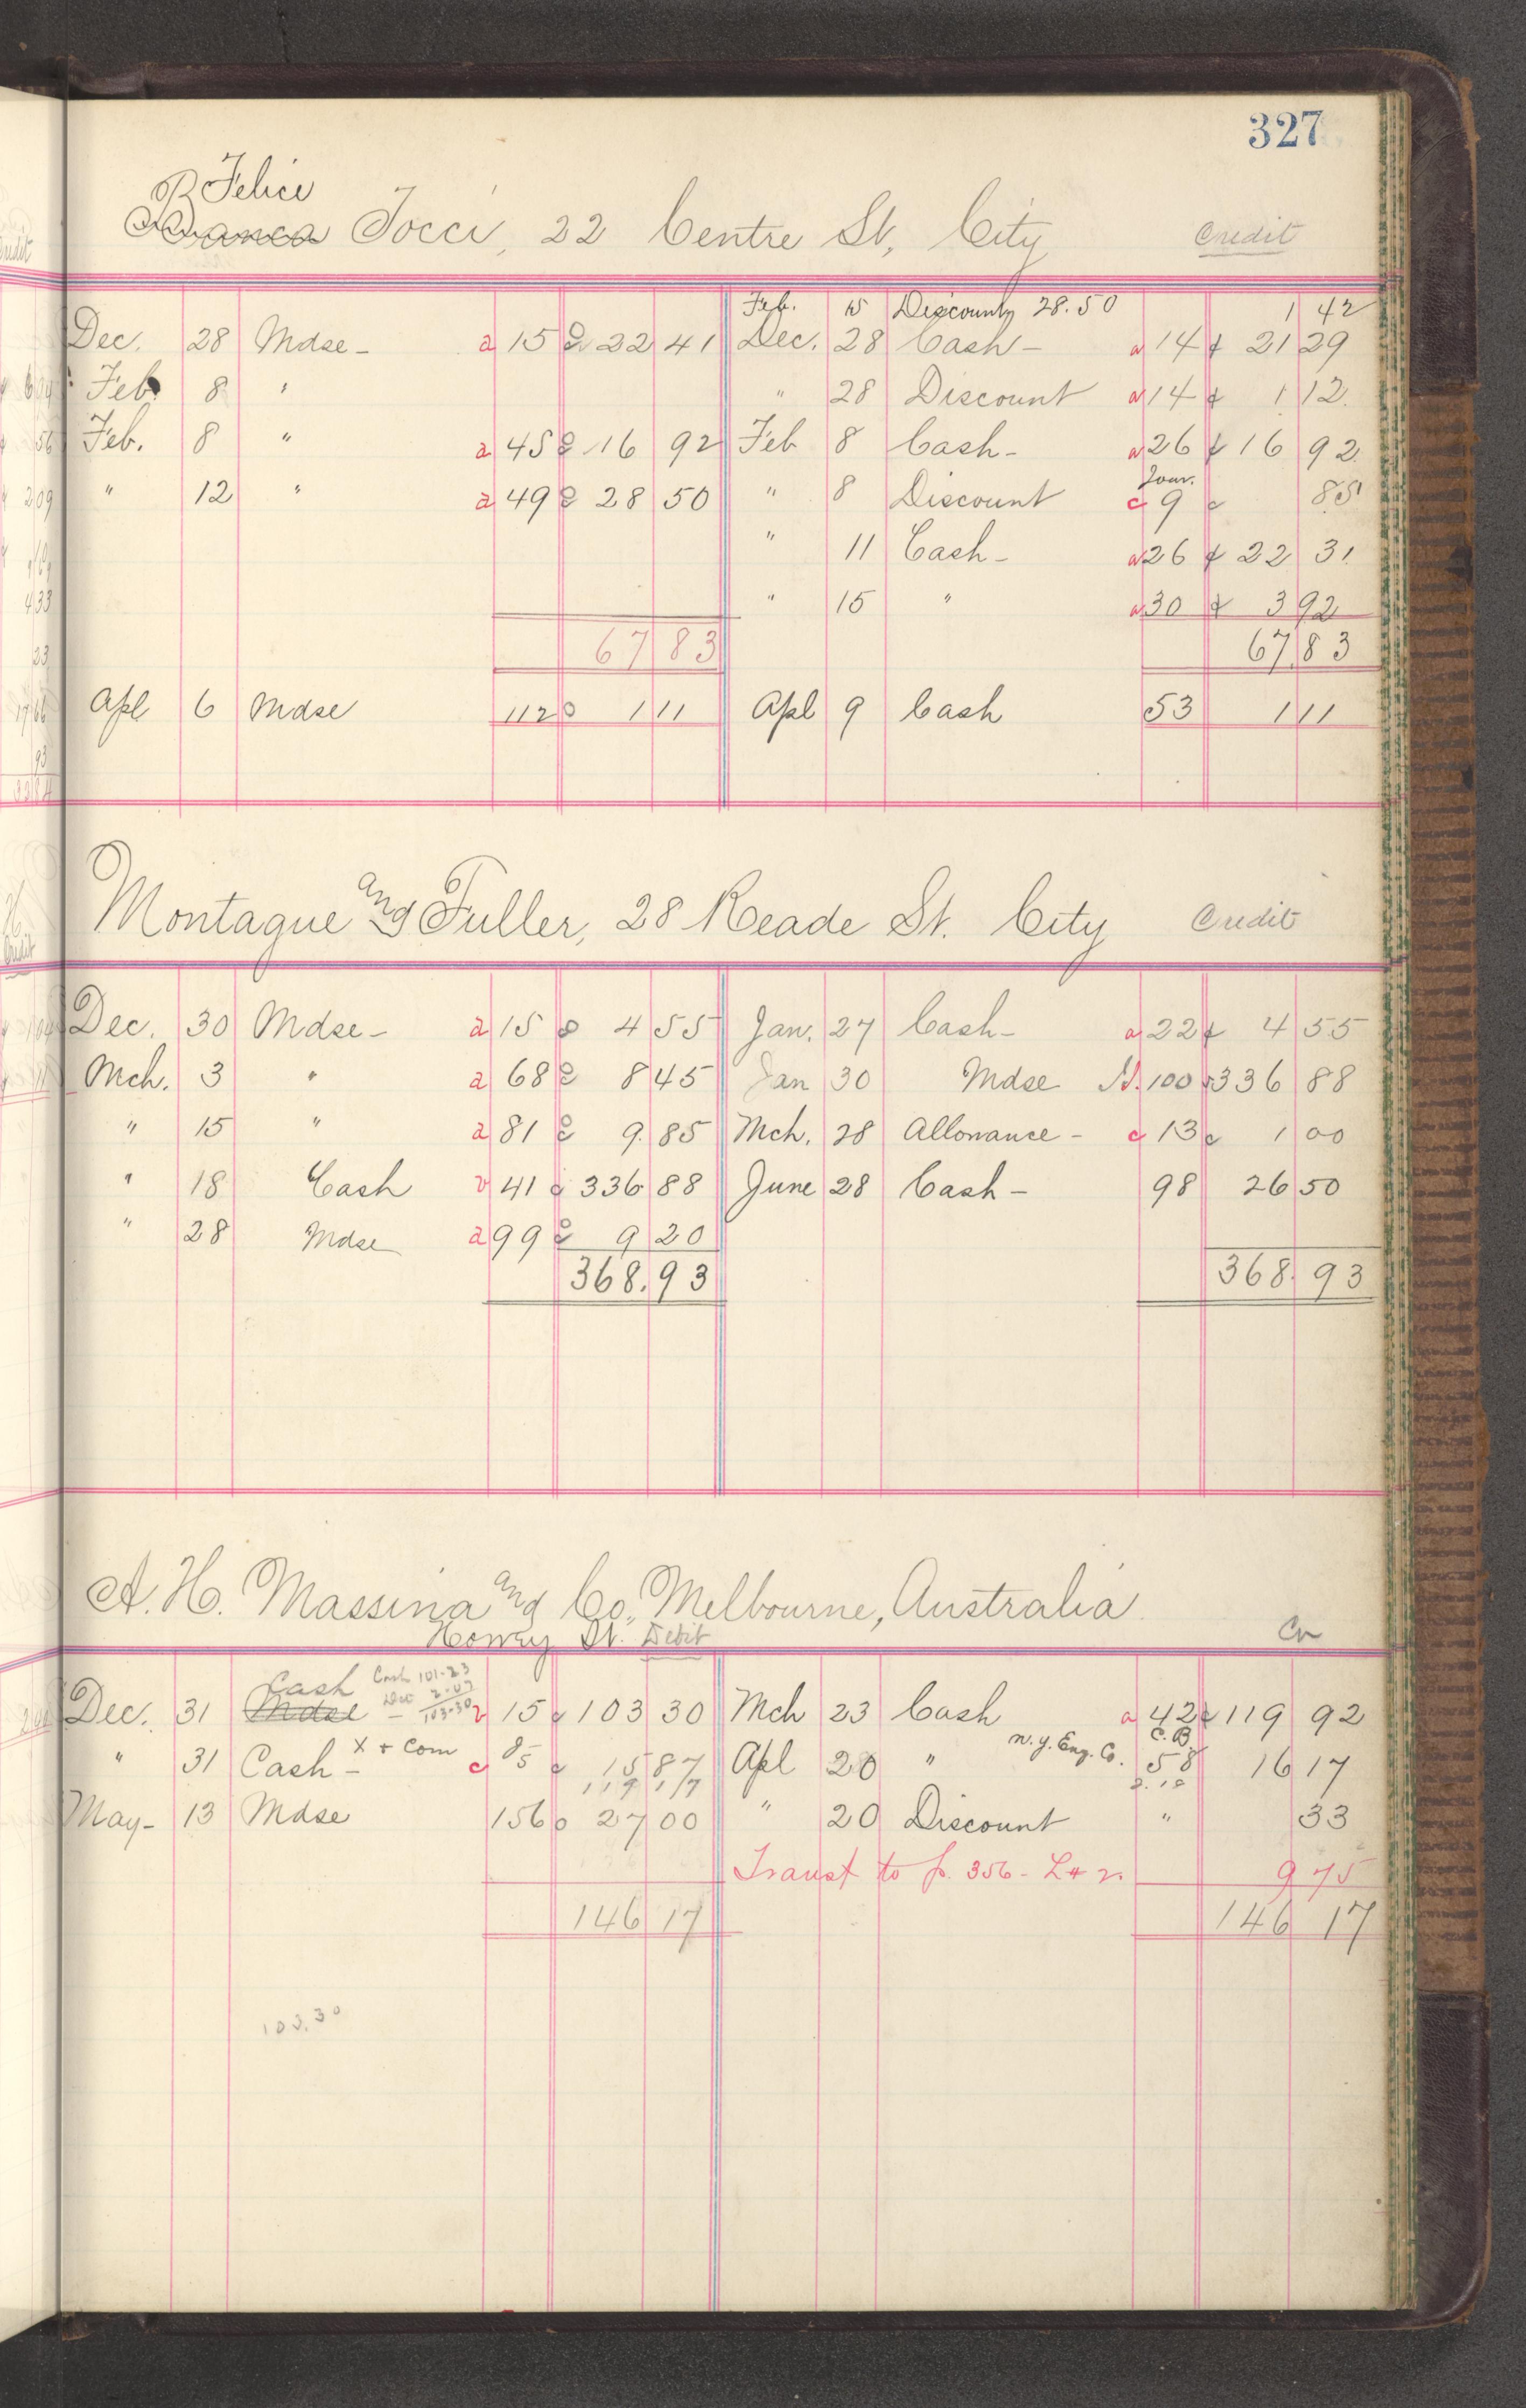 327
Felice
B Banca Tocci, 22 Centre St, City Credit
Feb. 15 Discount 28.50 1 42
Dec. 28 Mdse - a 15 22 41 Dec. 28 Cash - a 14 21 29
Feb. 8 " " 28 Discount a 14 1 12
Feb. 8 " a 45 16 92 Feb 8 Cash - a 26 16 92
" 12 " a 49 28 50 " 8 Discount c Jour. 9 85
" 11 Cash - a 26 22 31
" 15 " a 30 3 92
67 83 67 83
Apl 6 Mdse 112 1 11 Apl 9 Cash 53 1 11
Montague and Fuller, 28 Reade St. City Credit
Dec. 30 Mdse - a 15 4 55 Jan. 27 Cash - a 22 4 55
Mch. 3 " a 68 8 45 Jan 30 Mdse 100 336 88
" 15 " a 81 9.85 Mch. 28 Allowance - c 13 1 00
" 18 Cash v 41 336 88 June 28 Cash - 98 26 50
" 28 Mdse a 99 9 20
368.93 368.93
A. H. Massina and Co., Melbourne, Australia
Howey St. Debit Cr
Cash Cash 101-23
2.07
Dec. 31 Mdse - 103.30 v 15 103 30 Mch 23 Cash a 42 119 92
" 31 Cash - X + Com c 85 15 87 Apl 20 " N.Y. Eng. Co. C.B. 58 16 17
119 17
May - 13 Mdse 156 27 00 " 20 Discount " 33
Transf to p. 356 - L + 2. 9 75
146 17 146 17
103.30